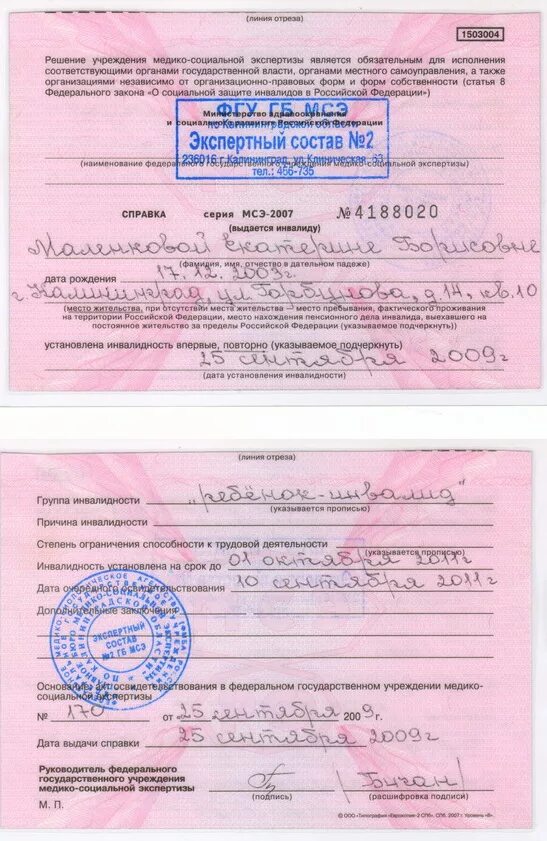 (линия отреза)
1503004
Решение учреждения медико-социальной экспертизы является обязательным для исполнения
соответствующими органами государственной власти, органами местного самоуправления, а также
организациями независимо от организационно-правовых форм и форм собственности (статья 8
Федерального закона «О социальной защите инвалидов в Российской Федерации»)
ФГУ ГБ МСЭ
Министерство здравоохранения
по Калининградской области
и социального развития Российской Федерации
Экспертный состав №2
236016 г.Калининград, ул.Клиническая, 63
(наименование федерального государственного учреждения медико-социальной экспертизы)
тел.: 466-735
СПРАВКА серия МСЭ-2007 №4188020
(выдается инвалиду)
Маленковой Екатерине Борисовне
(фамилия, имя, отчество в дательном падеже)
дата рождения 17.12.2003г.
г. Калининград, ул. Горбунова, д.14, кв.10
(место жительства, при отсутствии места жительства — место пребывания, фактического проживания
на территории Российской Федерации, место нахождения пенсионного дела инвалида, выехавшего на
постоянное жительство за пределы Российской Федерации (указываемое подчеркнуть))
установлена инвалидность впервые, повторно (указываемое подчеркнуть)
25 сентября 2009г
(дата установления инвалидности)
(линия отреза)
Группа инвалидности "ребёнок-инвалид"
(указывается прописью)
Причина инвалидности
Степень ограничения способности к трудовой деятельности
(указывается прописью)
Инвалидность установлена на срок до 01 октября 2011г
Дата очередного освидетельствования 10 сентября 2011г
Дополнительные заключения
ЭКСПЕРТНЫЙ
СОСТАВ
№2 ГБ МСЭ
Основание: акт освидетельствования в федеральном государственном учреждении медико-
социальной экспертизы
№ 170 от «25 сентября 2009г.
Дата выдачи справки 25 сентября 2009г
Руководитель федерального
государственного учреждения
медико-социальной экспертизы
(подпись) (расшифровка подписи)
М. П.